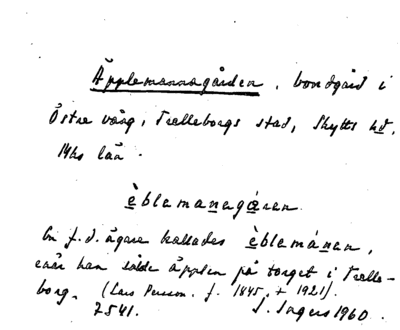 Äpplemannagården, bondgård i
Östra vång, Trelleborgs stad, Skytts hd,
Mhs län.
èblamanagǻren
En f.d. ägare kallades èblamánen,
enär han sålde äpplen på torget i Trelle-
borg. (Lars Persson. f. 1845, + 1921).
7541. I. Ingers 1960.